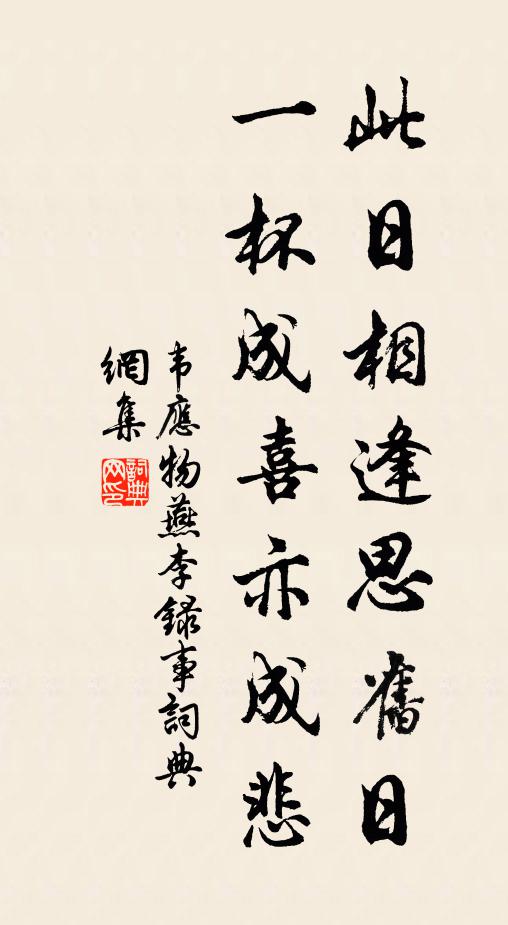 此日相逢思舊日
一杯成喜亦成悲
韦應物燕李録事詞典
網集
詞典
网印